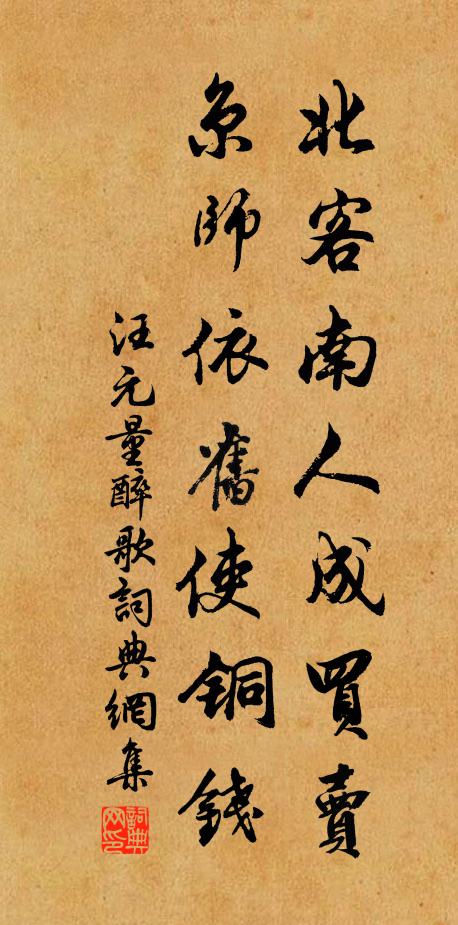 北客南人成買賣
京師依舊使銅錢
汪元量醉歌詞典網集
詞典网印